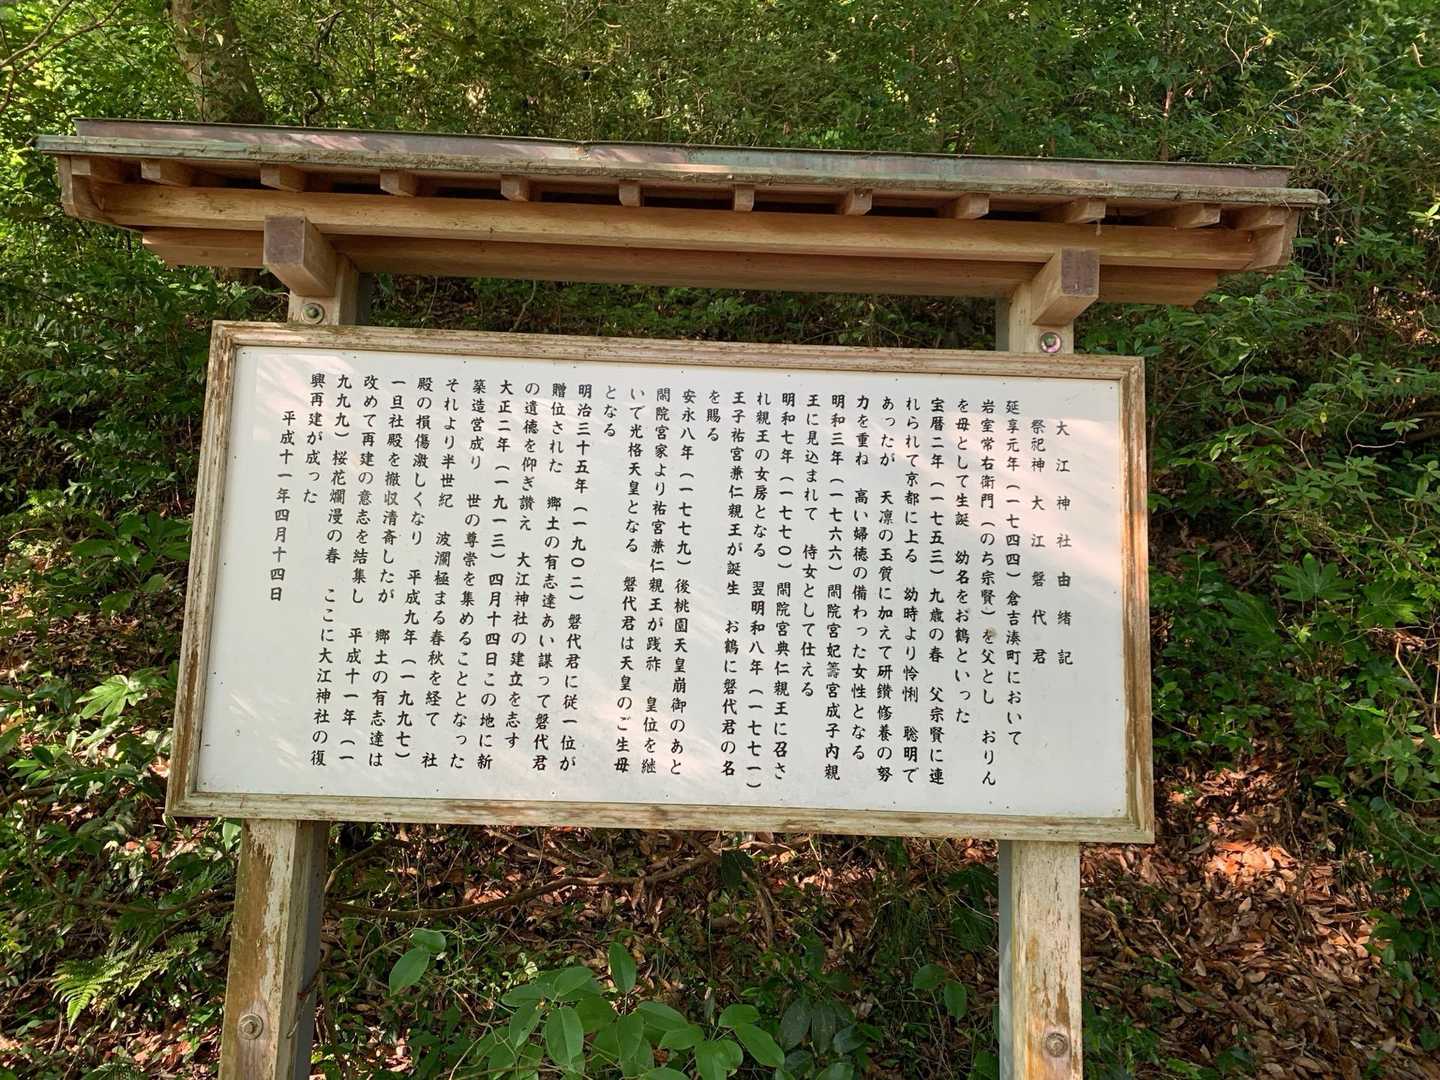 大江神社由緒記
祭祀神 大江磐代君
延享元年(一七四四)倉吉湊町において
岩室常右衛門(のち宗賢)を父とし おりん
を母として生誕 幼名をお鶴といった
宝暦二年(一七五三)九歳の春 父宗賢に連
れられて京都に上る 幼時より怜悧 聡明で
あったが 天凛の玉質に加えて研鑚修養の努
力を重ね 高い婦徳の備わった女性となる
明和三年(一七六六)閑院宮妃籌宮成子内親
王に見込まれて 侍女として仕える
明和七年(一七七〇)閑院宮典仁親王に召さ
れ親王の女房となる 翌明和八年(一七七一)
王子祐宮兼仁親王が誕生 お鶴に磐代君の名
を賜る
安永八年(一七七九)後桃園天皇崩御のあと
閑院宮家より祐宮兼仁親王が践祚 皇位を継
いで光格天皇となる 磐代君は天皇のご生母
となる
明治三十五年(一九〇二)磐代君に従一位が
贈位された 郷土の有志達あい謀って磐代君
の遺徳を仰ぎ讃え 大江神社の建立を志す
大正二年(一九一三)四月十四日この地に新
築造営成り 世の尊崇を集めることとなった
それより半世紀 波瀾極まる春秋を経て 社
殿の損傷激しくなり 平成九年(一九九七)
一旦社殿を撤収清斎したが 郷土の有志達は
改めて再建の意志を結集し 平成十一年(一
九九九)桜花爛漫の春 ここに大江神社の復
興再建が成った
平成十一年四月十四日